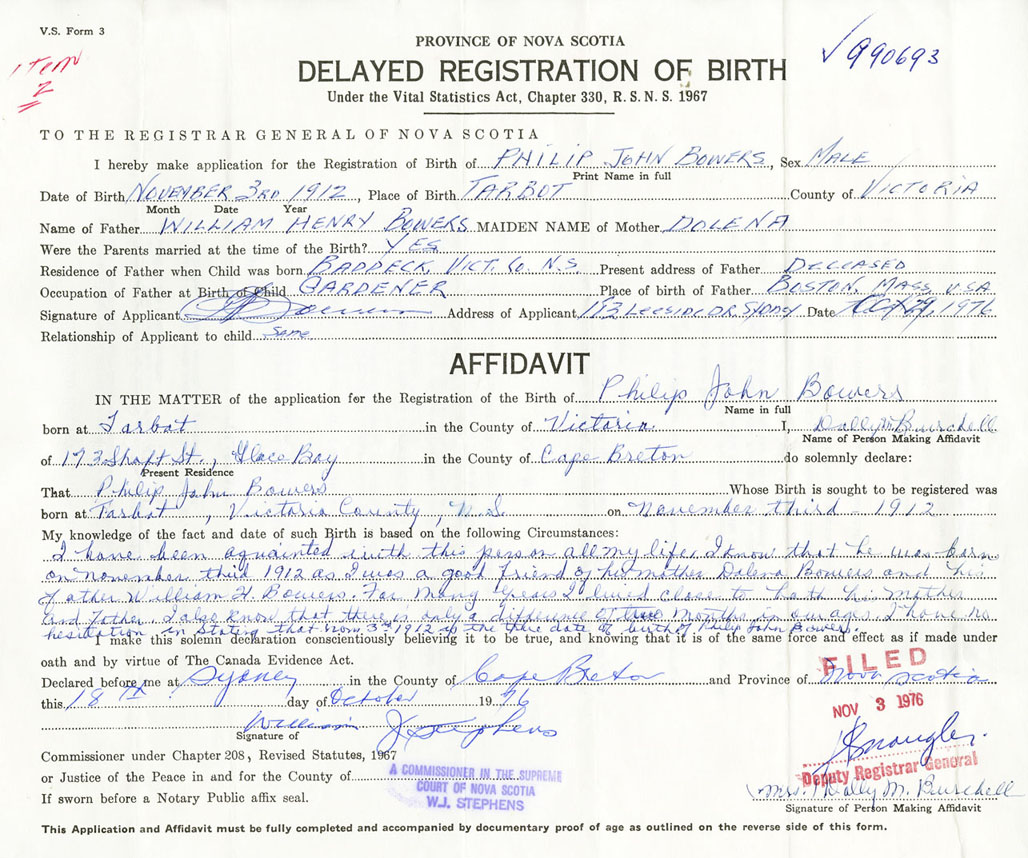 V.S. Form 3
ITEM
2
990693
PROVINCE OF NOVA SCOTIA
DELAYED REGISTRATION OF BIRTH
Under the Vital Statistics Act, Chapter 330, R.S.N.S. 1967
TO THE REGISTRAR GENERAL OF NOVA SCOTIA
I hereby make application for the Registration of Birth of PHILIP JOHN BOWERS, Sex MALE
Print Name in full
Date of Birth NOVEMBER 3RD 1912, Place of Birth TARBOT County of VICTORIA
Month Date Year
Name of Father WILLIAM HENRY BOWERS MAIDEN NAME of Mother DOLENA
Were the Parents married at the time of the Birth? YES
Residence of Father when Child was born BADDECK, VICT. Co. N.S. Present address of Father DECEASED
Occupation of Father at Birth of Child GARDENER Place of birth of Father BOSTON, MASS, USA
Signature of Applicant Bowers Address of Applicant LEESIDE DR SYDNEY Date Oct 29, 1976
Relationship of Applicant to child Same
AFFIDAVIT
IN THE MATTER of the application for the Registration of the Birth of Philip John Bowers
Name in full
born at Tarbot in the County of Victoria I, Dolly M Burchell
Name of Person Making Affidavit
of 173 Shaft St., Glace Bay in the County of Cape Breton do solemnly declare:
Present Residence
That Philip John Bowers Whose Birth is sought to be registered was
born at Tarbot, Victoria County, N.S. on November third - 1912
My knowledge of the fact and date of such Birth is based on the following Circumstances:
I have been aquainted with this person all my life. I know that he was born
on November third 1912 as I was a good friend of his mother Dolena Bowers and his
father William H. Bowers. For many years I lived close to both his mother
and Father. I also know that there is only a difference of two months in our ages. I have no
hesitation in stating that Nov 3rd 1912 is the true date of birth of Philip John Bowers.
I make this solemn declaration conscientiously believing it to be true, and knowing that it is of the same force and effect as if made under
oath and by virtue of The Canada Evidence Act.
Declared before me at Sydney in the County of Cape Breton and Province of Nova Scotia
FILED
this 18th day of October 1976
NOV 3 1976
William J Stephens
Signature of
Commissioner under Chapter 208, Revised Statutes, 1967
or Justice of the Peace in and for the County of
A COMMISSIONER IN THE SUPREME
COURT OF NOVA SCOTIA
W.J. STEPHENS
Deputy Registrar General
Mrs. Dolly M. Burchell
If sworn before a Notary Public affix seal.
Signature of Person Making Affidavit
This Application and Affidavit must be fully completed and accompanied by documentary proof of age as outlined on the reverse side of this form.